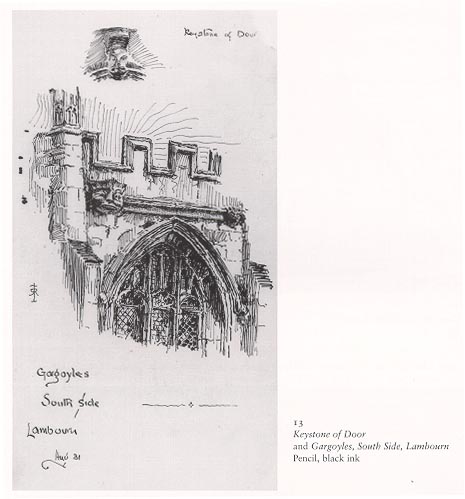 Keystone of Door
Gargoyles
South Side
Lambourn
13
Keystone of Door
and Gargoyles, South Side, Lambourn
Pencil, black ink